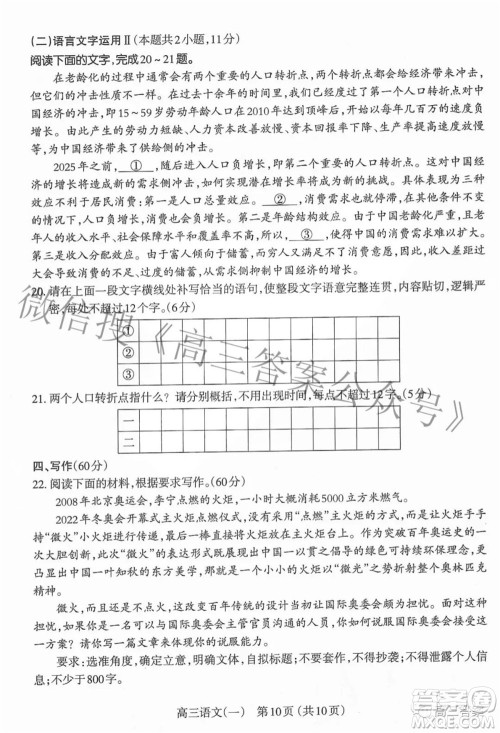 (二)语言文字运用Ⅱ(本题共2小题,11分)
阅读下面的文字,完成20~21题。
在老龄化的过程中通常会有两个重要的人口转折点,两个转折点都会对经济带来冲击,
但是冲击的性质不同。在第一个人口转折点时,劳动年龄人口的负增长从供给侧冲击中
国经济的增长,即15~59岁劳动年龄人口在2010年达到顶峰后,开始以每年几百万的速度
减少。由此产生的劳动力短缺、人力资本改善放慢、资本回报率下降、生产率提高速度放慢,
为中国经济带来了供给侧的冲击。
2025年之前,①,进入人口负增长,即第二个重要的人口转折点时,这对中国经
济的增长将造成新的需求侧冲击,居民消费将成为新的挑战。具体来说有三个效应会影响
居民消费增长:第一是人口总量效应。人口就是消费者,②,在其他条件都不变
的情况下,消费也会负增长。第二是年龄结构效应。因为中国老龄化严重,加上目前中国老
年人的收入水平、社会保障水平和覆盖率不高,所以③,这同样会对消费造成影响。
第三是收入分配效应。由于富人倾向于储蓄,而穷人没有能力进行更多的消费,所以收入差
距大会导致消费的不足和过度的储蓄,因此也抑制了消费。
20. 请在上面一段文字横线处补写恰当的语句,使整段文字语意完整连贯,内容贴切,逻辑严
密,每处不超过12个字。(6分)
①
②
③
21. 两个人口转折点指什么?请分别概括,不用出现时间,每点不超过12字。(5分)
一
二
四、写作(60分)
22. 阅读下面的材料,根据要求写作。(60分)
2008年北京奥运会,李宁点燃的火炬,一小时消耗超过5000立方米燃气。
2022年冬奥会开幕式主火炬点燃方式没有采用“点燃”主火炬,而是将最后一棒火炬手
手持“微火”小火炬直接嵌入主火炬台的方式来呈现。作为突破百年奥运史的一次大胆设
计,主火炬“微火”形式无疑是此次开幕式的最大亮点。它结合了中国自古以来“一叶知秋”
这种由一片叶子而知秋的东方美学,又实现了主火炬以“微光”之姿传达了整个奥林匹克
精神。
微火,而且还是不点火,这种颠覆百年传统的设计当初让国际奥委会都很惊讶。假如你
是冬奥组委会的代表,你将如何与国际奥委会的主管官员沟通交流,说服国际奥委会接受这
一方案?请以此写一篇文章陈述你的说服理由。
要求:选准角度,确定立意,明确文体,自拟标题;不得套作,不得抄袭;不得泄露个人信
息;不少于800字。
高三语文(一) 第10页(共10页)
微信搜《高三答案公众号》